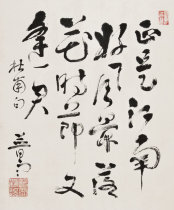 正是江南
好風景落
花時節又
逢君
杜甫句